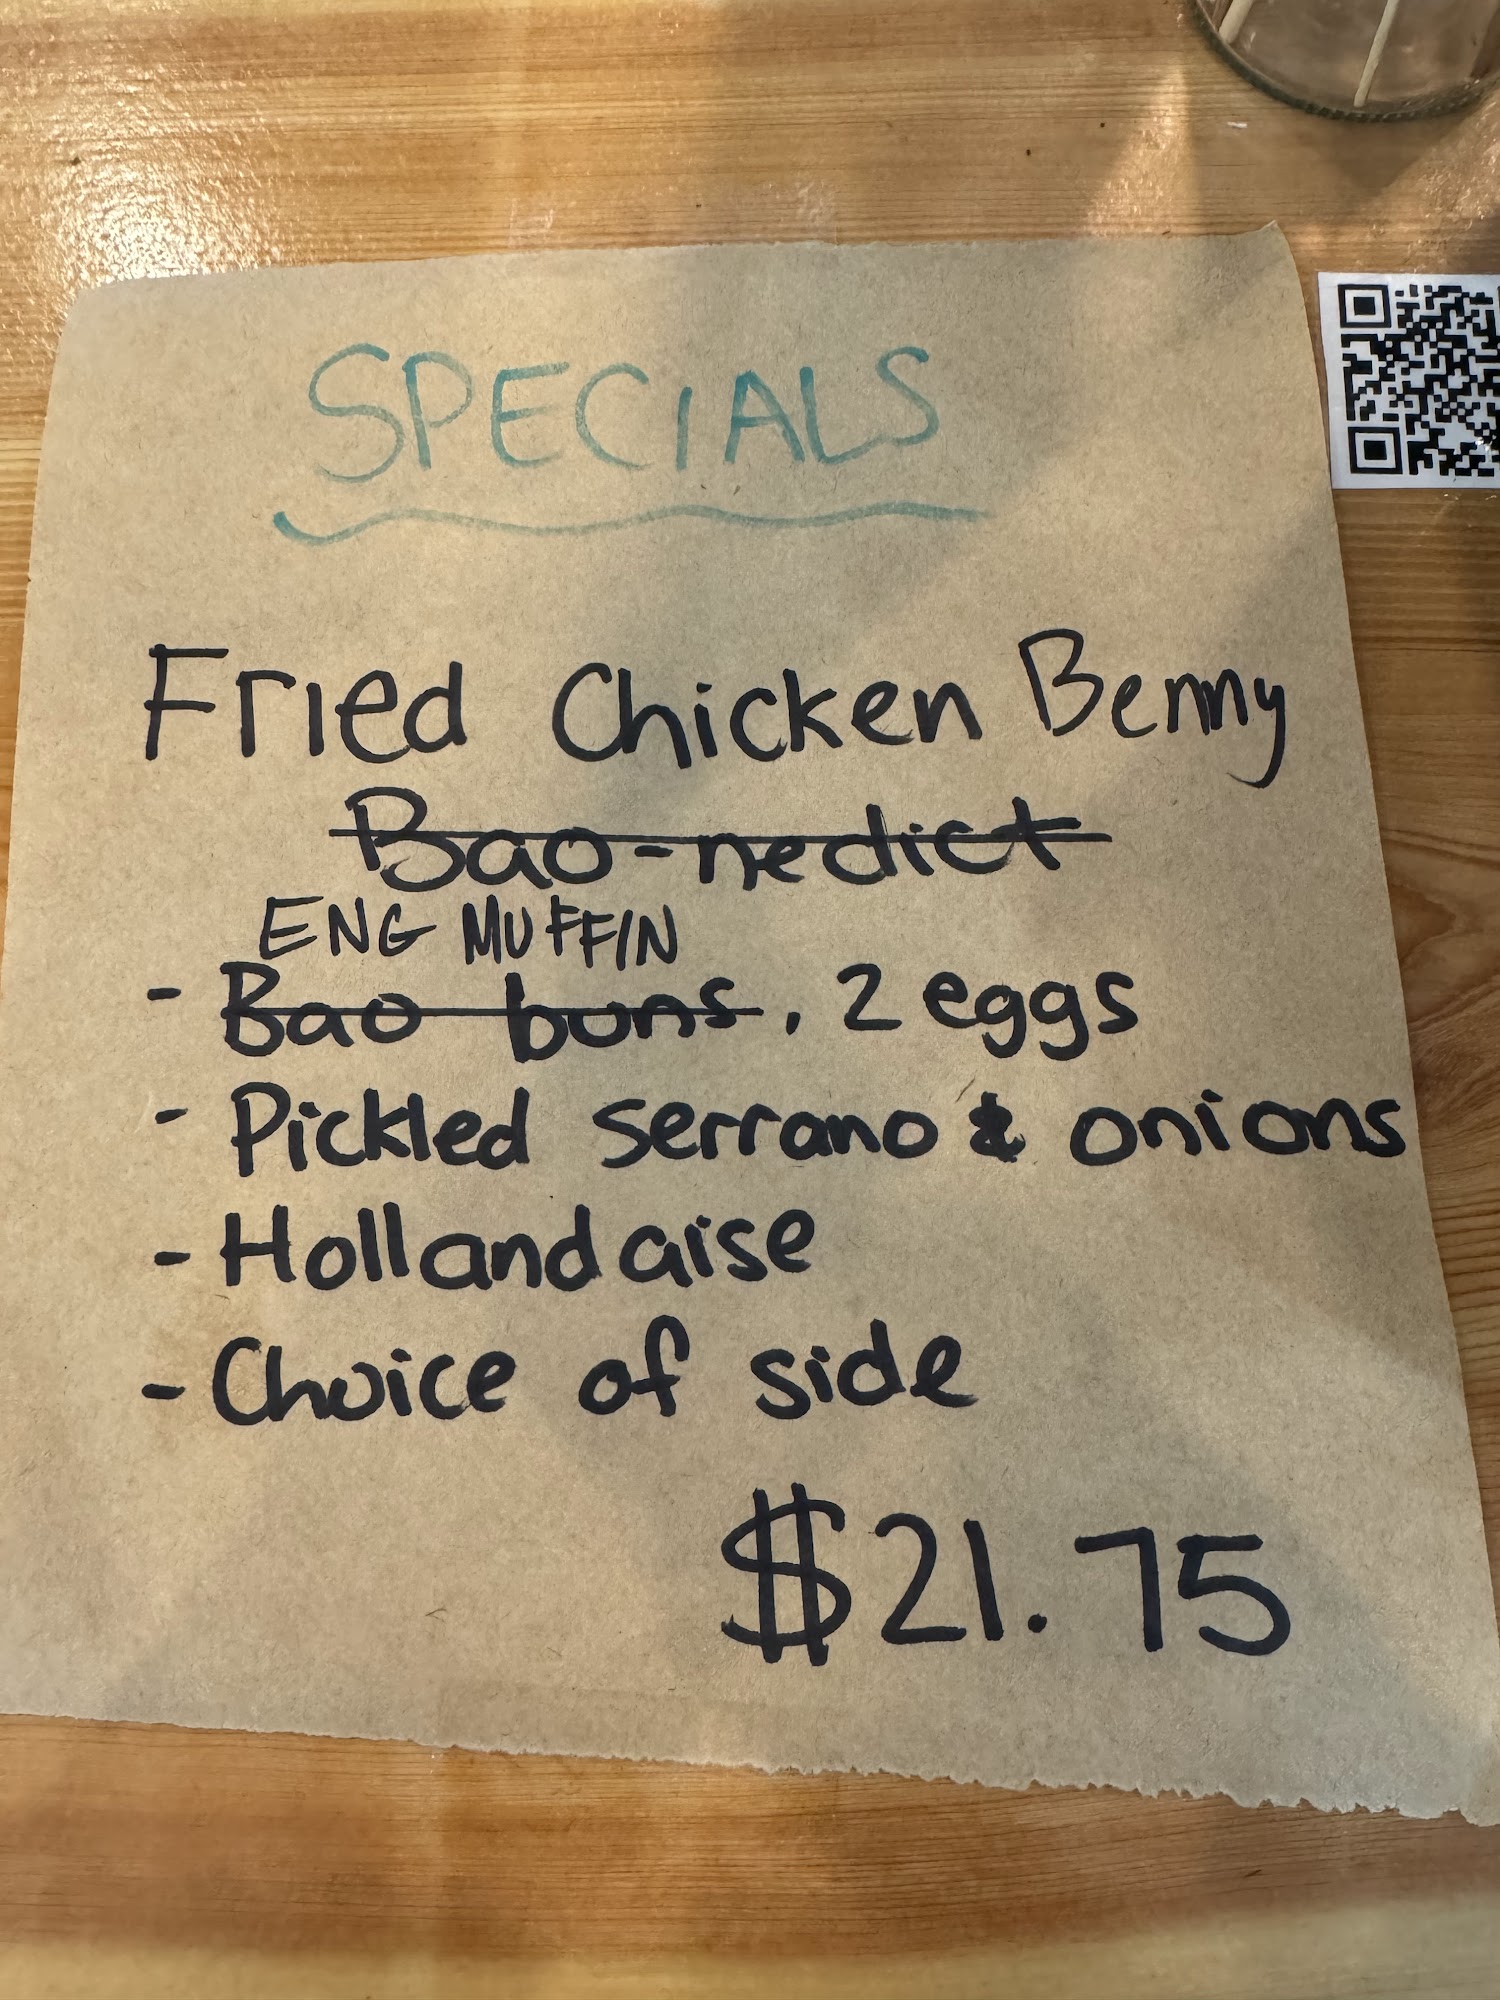 SPECIALS
Fried Chicken Benny
Bao-nedict
ENG MUFFIN
- Bao buns, 2 eggs
- Pickled serrano & onions
- Hollandaise
- Choice of side
$21.75